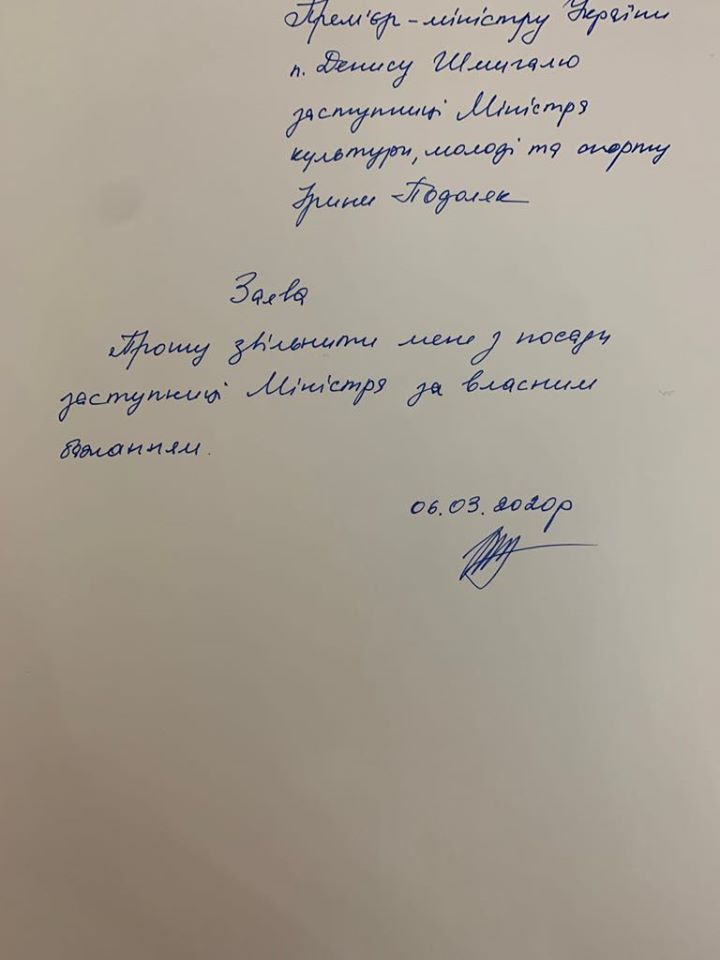 Прем'єр-міністру України
п. Денису Шмигалю
заступниці Міністра
культури, молоді та спорту
Ірини Подоляк
Заява
Прошу звільнити мене з посади
заступниці Міністра за власним
бажанням.
06.03.2020р